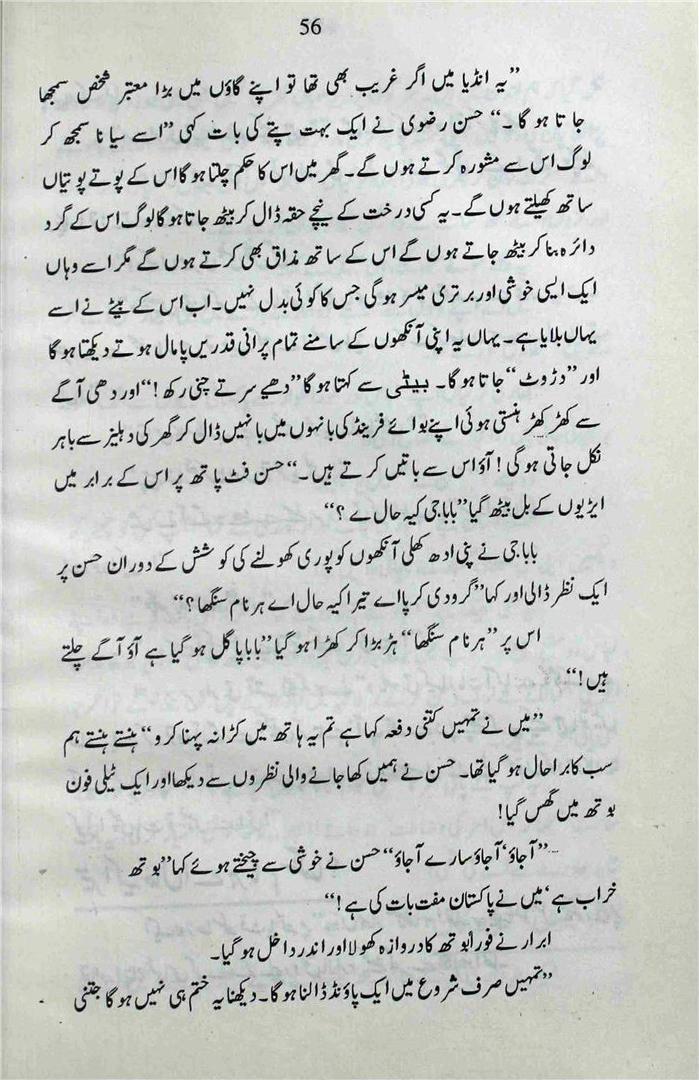 56
”یہ انڈیا میں اگر غریب بھی تھا تو اپنے گاؤں میں بڑا معتبر شخص سمجھا
جاتا ہو گا ۔“ حسن رضوی نے ایک بہت پتے کی بات کہی ”اسے سیانا سمجھ کر
لوگ اس سے مشورہ کرتے ہوں گے۔ گھر میں اس کا حکم چلتا ہو گا اس کے پوتے پوتیاں
ساتھ کھیلتے ہوں گے۔ یہ کسی درخت کے نیچے حقہ ڈال کر بیٹھ جاتا ہو گا لوگ اس کے گرد
دائرہ بنا کر بیٹھ جاتے ہوں گے اس کے ساتھ مذاق بھی کرتے ہوں گے مگر اسے وہاں
ایک ایسی خوشی اور برتری میسر ہو گی جس کا کوئی بدل نہیں۔ اب اس کے بیٹے نے اسے
یہاں بلایا ہے۔ یہاں یہ اپنی آنکھوں کے سامنے تمام پرانی قدریں پامال ہوتے دیکھتا ہو گا
اور ”دڑوٹ“ جاتا ہو گا۔ بیٹی سے کہتا ہو گا ”دھیے سر تے چنی رکھ !“ اور دھی آگے
سے کھڑ کھڑ ہنستی ہوئی اپنے بوائے فرینڈ کی بانہوں میں بانہیں ڈال کر گھر کی دہلیز سے باہر
نکل جاتی ہو گی ! آؤ اس سے باتیں کرتے ہیں۔“ حسن فٹ پاتھ پر اس کے برابر میں
ایڑیوں کے بل بیٹھ گیا ”بابا جی کیہ حال اے ؟“
بابا جی نے پنی ادھ کھلی آنکھوں کو پوری کھولنے کی کوشش کے دوران حسن پر
ایک نظر ڈالی اور کہا ”گرو دی کرپا اے تیرا کیہ حال اے ہرنام سنگھا ؟“
اس پر ”ہرنام سنگھا“ ہڑبڑا کر کھڑا ہو گیا ”بابا پاگل ہو گیا ہے آؤ آگے چلتے
ہیں !“
”میں نے تمہیں کتنی دفعہ کہا ہے تم یہ ہاتھ میں کڑا نہ پہنا کرو“ ہنستے ہنستے ہم
سب کا برا حال ہو گیا تھا۔ حسن نے ہمیں کھا جانے والی نظروں سے دیکھا اور ایک ٹیلی فون
بوتھ میں گھس گیا!
”آجاؤ‘ آجاؤ سارے آجاؤ“ حسن نے خوشی سے چیختے ہوئے کہا ”بوتھ
خراب ہے‘ میں نے پاکستان مفت بات کی ہے !“
ابرار نے فوراً بوتھ کا دروازہ کھولا اور اندر داخل ہو گیا۔
”تمہیں صرف شروع میں ایک پاؤنڈ ڈالنا ہو گا۔ دیکھنا یہ ختم ہی نہیں ہو گا جتنی